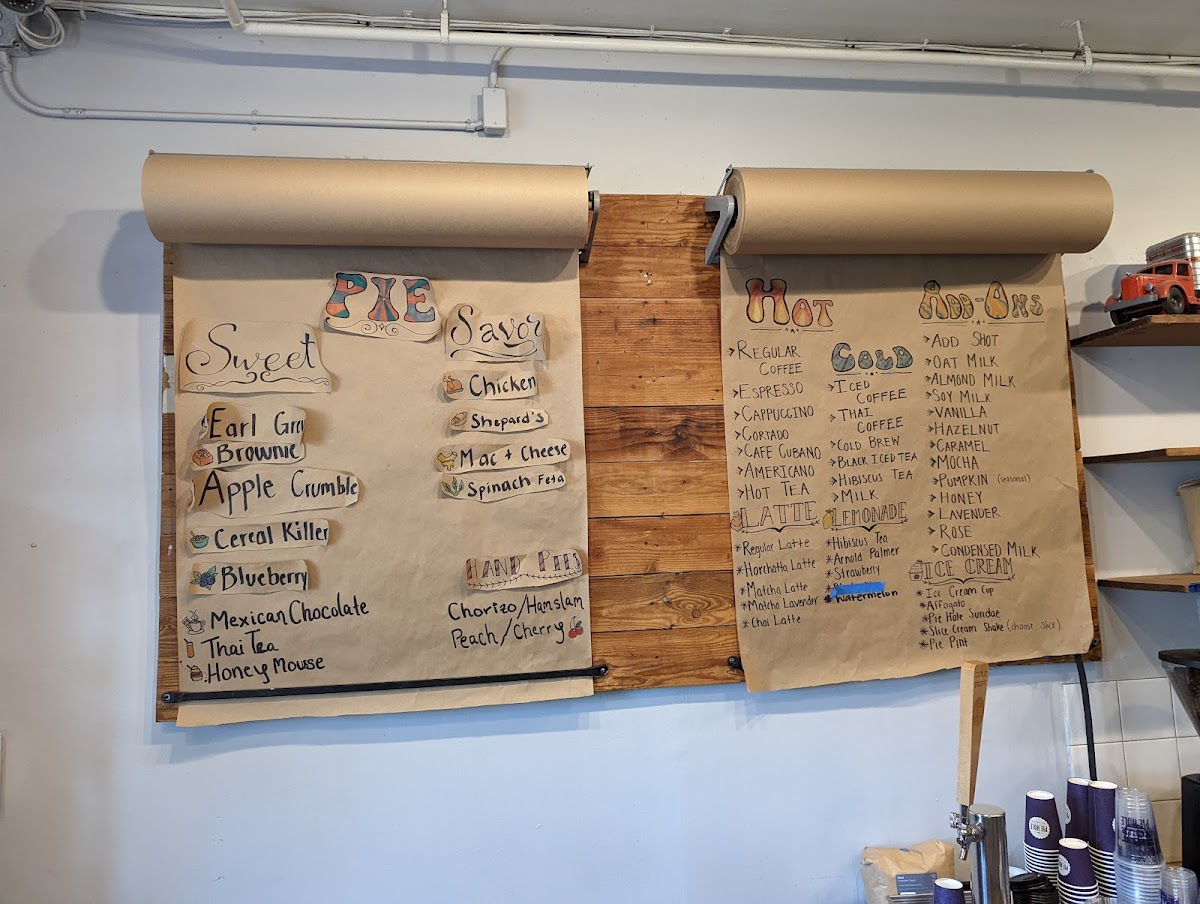 PIE
Sweet
Earl Gre
Brownie
Apple Crumble
Cereal Killer
Blueberry
Mexican Chocolate
Thai Tea
Honey Mouse
Savor
Chicken
Shepard's
Mac + Cheese
Spinach Feta
HAND PIES
Chorizo/Hamslam
Peach/Cherry
HOT
>REGULAR
COFFEE
>ESPRESSO
>CAPPUCCINO
>CORTADO
>CAFE CUBANO
>AMERICANO
>HOT TEA
LATTE
*Regular Latte
*Horchatta Latte
*Matcha Latte
*Matcha Lavender
*Chai Latte
COLD
>ICED
COFFEE
>THAI
COFFEE
>COLD BREW
>BLACK ICED TEA
>HIBISCUS TEA
>MILK
LEMONADE
*Hibiscus Tea
*Arnold Palmer
*Strawberry
*Watermelon
ADD-ONS
>ADD SHOT
>OAT MILK
>ALMOND MILK
>SOY MILK
>VANILLA
>HAZELNUT
>CARAMEL
>MOCHA
>PUMPKIN (seasonal)
>HONEY
>LAVENDER
>ROSE
>CONDENSED MILK
ICE CREAM
*Ice Cream Cup
*Affogato
*Pie Hole Sundae
*Slice Cream Shake (choose slice)
*Pie Pint
PIE HOLE